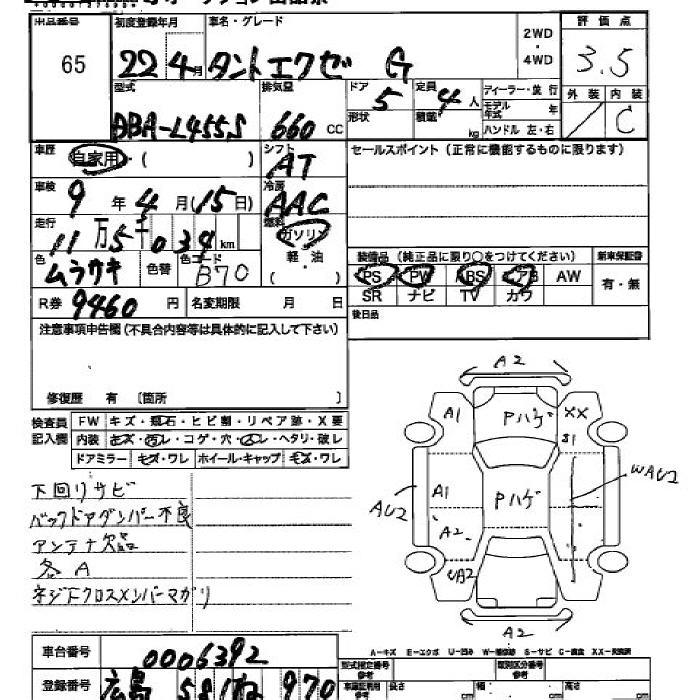 出品番号 初度登録年月 車名・グレード 2WD・4WD 評価点
65 22 4月 タントエクゼ G 3.5
型式 排気量 ドア 5 定員 4人 ディーラー・並行 外装 内装
DBA-L455S 660 CC 形状 積載 kg モデル年式 年 ／ C
ハンドル 左・右
車歴 自家用・( ) シフト AT セールスポイント (正常に機能するものに限ります)
車検 9年4月(15日) 冷房 AAC
走行 11万5千034km 燃料 ガソリン 軽・油 ( )
色 ムラサキ 色替 色コード B70
装備品 (純正品に限り○をつけてください) 新車保証書
PS PW ABS エアB AW 有・無
SR ナビ TV カワ
R券 9460円 名変期限 月 日 後日品
注意事項申告欄(不具合内容等は具体的に記入して下さい)
修復歴 有 〔箇所 〕
検査員記入欄 FW キズ・飛石・ヒビ割・リペア跡・X要
内装 キズ・汚レ・コゲ・穴・スレ・ヘタリ・破レ
ドアミラー キズ・ワレ ホイール・キャップ キズ・ワレ
下回リサビ
バックドアダンパー不良
アンテナ欠品
各A
ネジ下クロスメンバーマガリ
A2
A1 Pハゲ XX
S1
A1 Pハゲ WAU2
AU2 A2
UA2
A2
A-キズ E-エクボ U-凹み W-補修跡 S-サビ C-腐食 XX-交換済
車台番号 0006392
登録番号 広島 581 ね 970
型式指定番号 類別区分番号
長さ cm 幅 cm 高さ cm